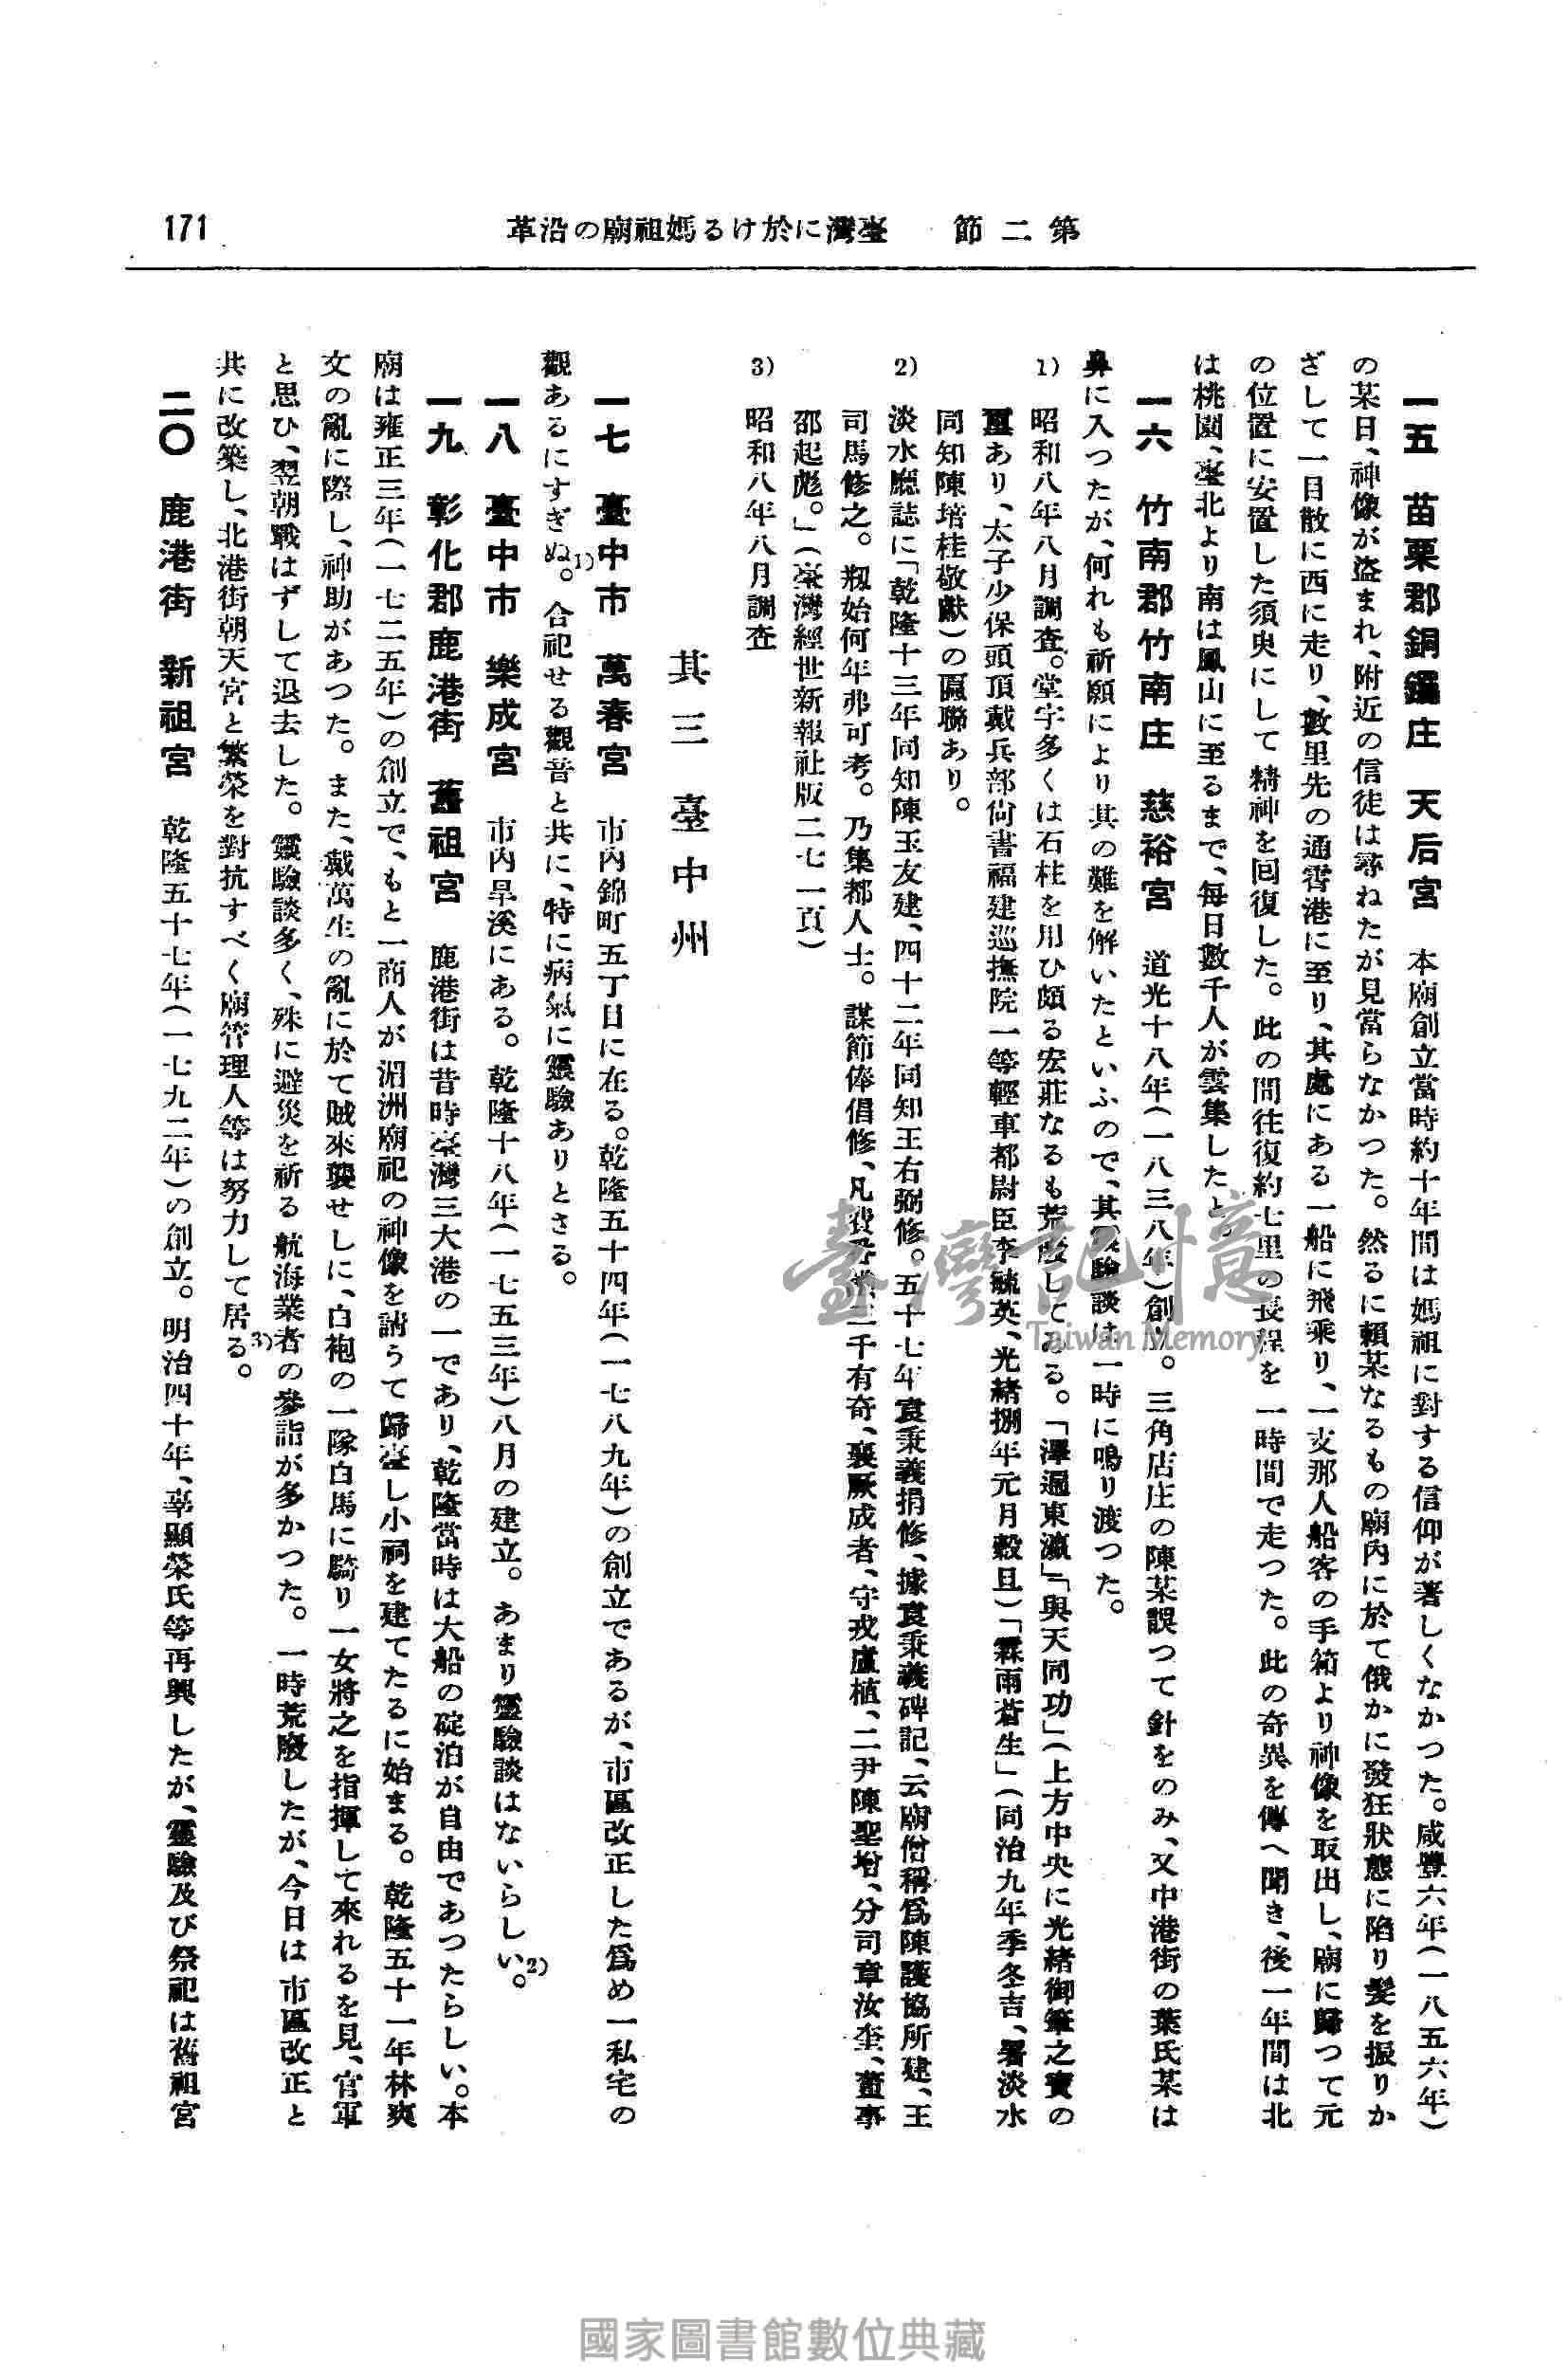 171
第二節 臺灣に於ける媽祖廟の沿革
一五 苗栗郡銅鑼庄 天后宮 本廟創立當時約十年間は媽祖に對する信仰が著しくなかつた。咸豐六年(一八五六年)
の某日、神像が盜まれ、附近の信徒は尋ねたが見當らなかつた。然るに賴某なるもの廟內に於て俄かに發狂狀態に陷り髮を振りか
ざして一目散に西に走り、數里先の通霄港に至り、其處にある一船に飛乘り、一支那人船客の手箱より神像を取出し、廟に歸つて元
の位置に安置した須臾にして精神を囘復した。此の間往復約七里の長程を一時間で走つた。此の奇異を傳へ聞き、後一年間は北
は桃園、臺北より南は鳳山に至るまで、每日數千人が雲集したと。
一六 竹南郡竹南庄 慈裕宮 道光十八年(一八三八年)創立。三角店庄の陳某誤つて針をのみ、又中港街の葉氏某は
鼻に入つたが、何れも祈願により其の難を解いたといふので、其靈驗談は一時に鳴り渡つた。
1) 昭和八年八月調査。堂宇多くは石柱を用ひ頗る宏莊なるも荒廢してゐる。「澤遍東瀛」「與天同功」(上方中央に光緖御筆之寶の
璽あり、太子少保頭頂戴兵部尙書福建巡撫院一等輕車都尉臣李毓英、光緖捌年元月穀旦)「霖雨蒼生」(同治九年季冬吉、署淡水
同知陳培桂敬獻)の匾聯あり。
2) 淡水廳誌に「乾隆十三年同知陳玉友建、四十二年同知王右弼修。五十七年袁秉義捐修、據袁秉義碑記、云廟僧稱爲陳護協所建、王
司馬修之。剏始何年弗可考。乃集都人士。謀節俸倡修、凡費 三千有奇、襄厥成者、守戎盧植、二尹陳聖增、分司章汝奎、董事
邵起彪。」(臺灣經世新報社版二七一頁)
3) 昭和八年八月調査
其三 臺中州
一七 臺中市 萬春宮 市內錦町五丁目に在る。乾隆五十四年(一七八九年)の創立であるが、市區改正した爲め一私宅の
觀あるにすぎぬ。1) 合祀せる觀音と共に、特に病氣に靈驗ありとさる。
一八 臺中市 樂成宮 市內旱溪にある。乾隆十八年(一七五三年)八月の建立。あまり靈驗談はないらしい。2)
一九 彰化郡鹿港街 舊祖宮 鹿港街は昔時臺灣三大港の一であり、乾隆當時は大船の碇泊が自由であつたらしい。本
廟は雍正三年(一七二五年)の創立で、もと一商人が湄洲廟祀の神像を請うて歸臺し小祠を建てたるに始まる。乾隆五十一年林爽
文の亂に際し、神助があつた。また、戴萬生の亂に於て賊來襲せしに、白袍の一隊白馬に騎り一女將之を指揮して來れるを見、官軍
と思ひ、翌朝戰はずして退去した。靈驗談多く、殊に避災を祈る航海業者の參詣が多かつた。一時荒廢したが、今日は市區改正と
共に改築し、北港街朝天宮と繁榮を對抗すべく廟管理人等は努力して居る。3)
二〇 鹿港街 新祖宮 乾隆五十七年(一七九二年)の創立。明治四十年、辜顯榮氏等再興したが、靈驗及び祭祀は舊祖宮
臺灣記憶
Taiwan Memory
國家圖書館數位典藏